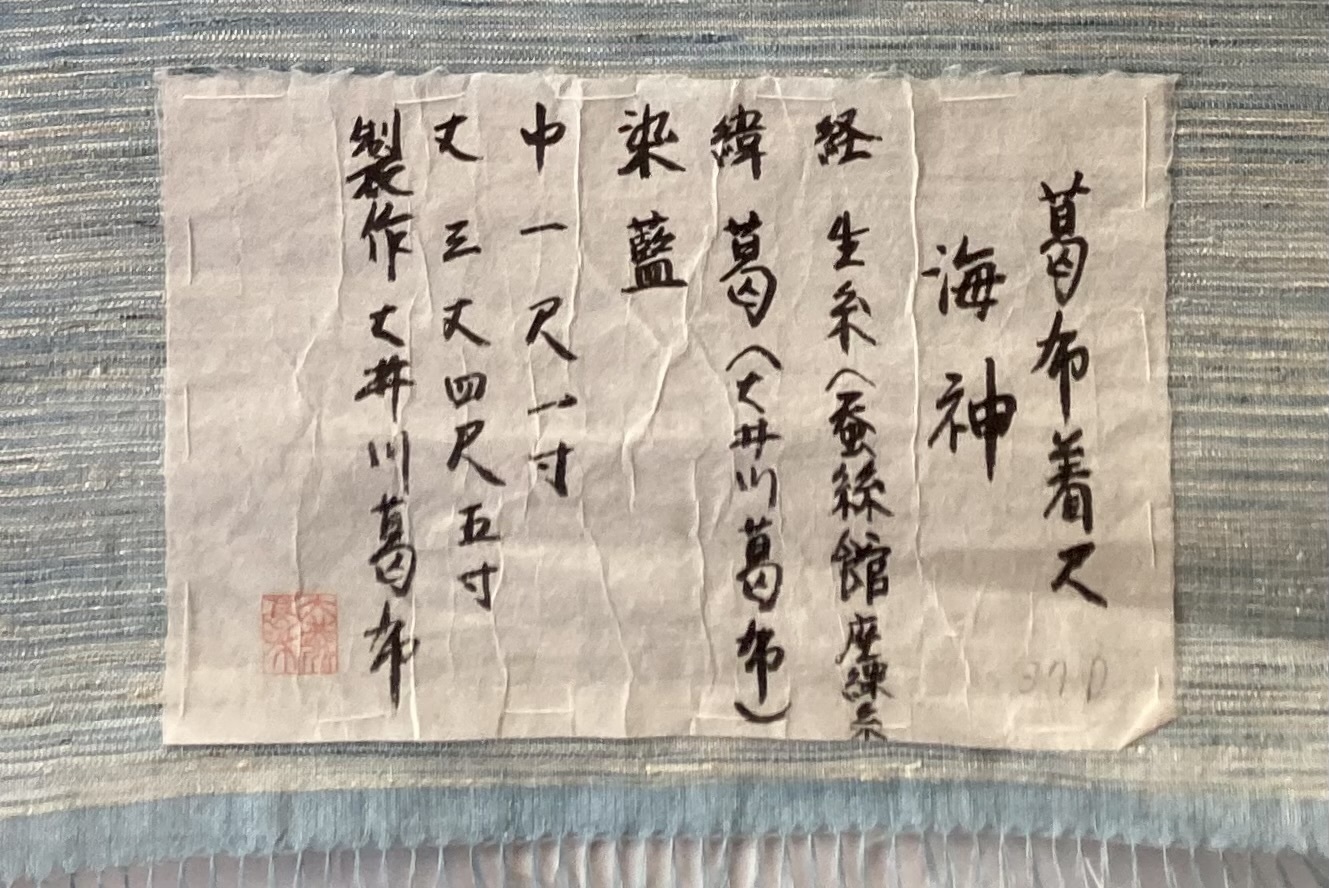 葛布着尺
海神
経 生糸(蚕絲館座繰糸
緯 葛(大井川葛布)
染 藍
巾 一尺一寸
丈 三丈四尺五寸
製作 大井川葛布